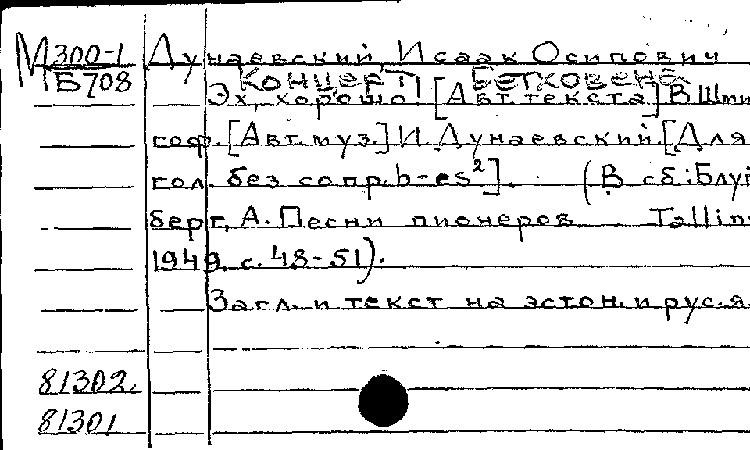 М 300-1 Дунаевский, Исаак Осипович
Б708 Концерт Бетховена
Эх, хорошо! [Авт. текста] В. Шми
соф. [Авт. муз.] И. Дунаевский. [Для
гол. без сопр. b-es²]. (В сб.: Блуй
берг, А. Песни пионеров Tallin
1949, с. 48-51).
Загл. и текст на эстон. и рус. я
81302.
81301